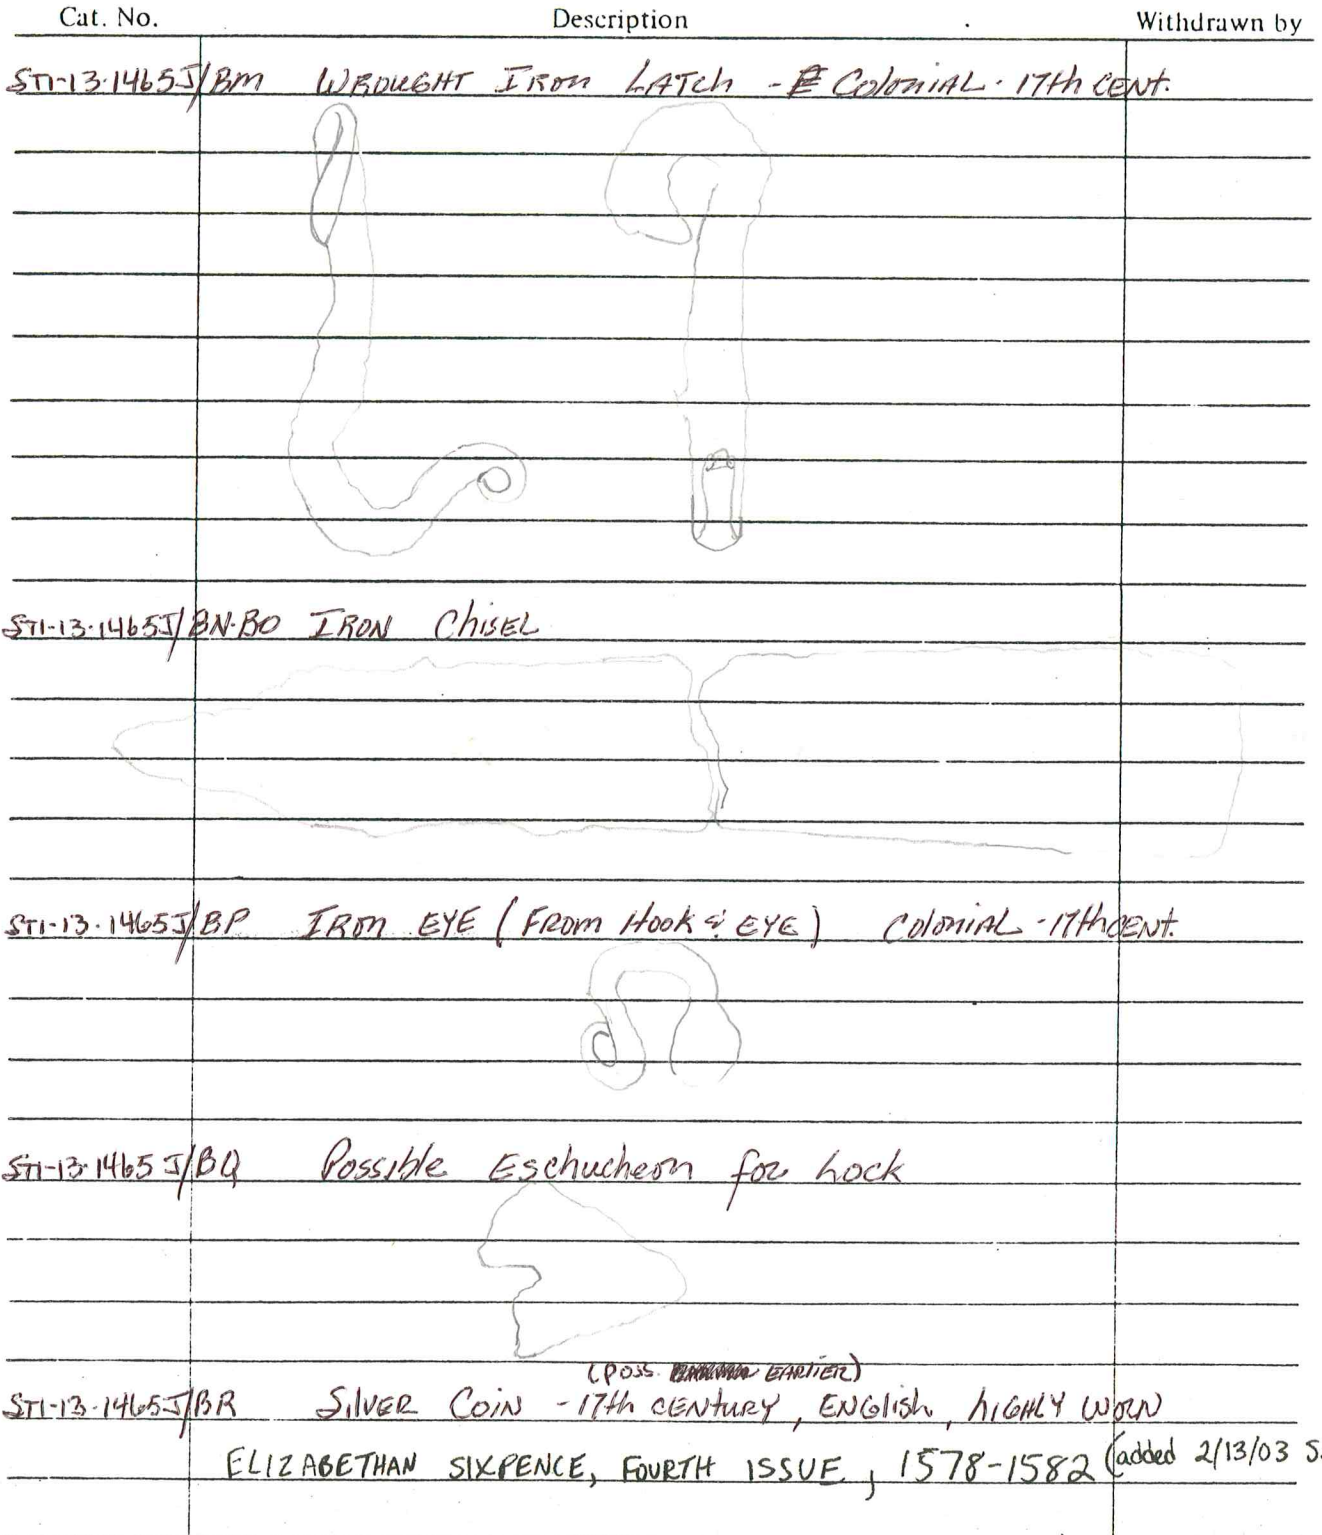 Cat. No. Description Withdrawn by
ST1-13-1465J/BM WROUGHT IRON LATCH - COLONIAL - 17th CENT.
ST1-13-1465J/BN-BO IRON CHISEL
ST1-13-1465J/BP IRON EYE (FROM HOOK & EYE) COLONIAL - 17th CENT.
ST1-13-1465J/BQ Possible Eschucheon for Lock
(POSS. EARLIER)
ST1-13-1465J/BR SILVER COIN - 17th CENTURY, ENGlish, HIGHLY WORN
ELIZABETHAN SIXPENCE, FOURTH ISSUE, 1578-1582 (added 2/13/03 S.